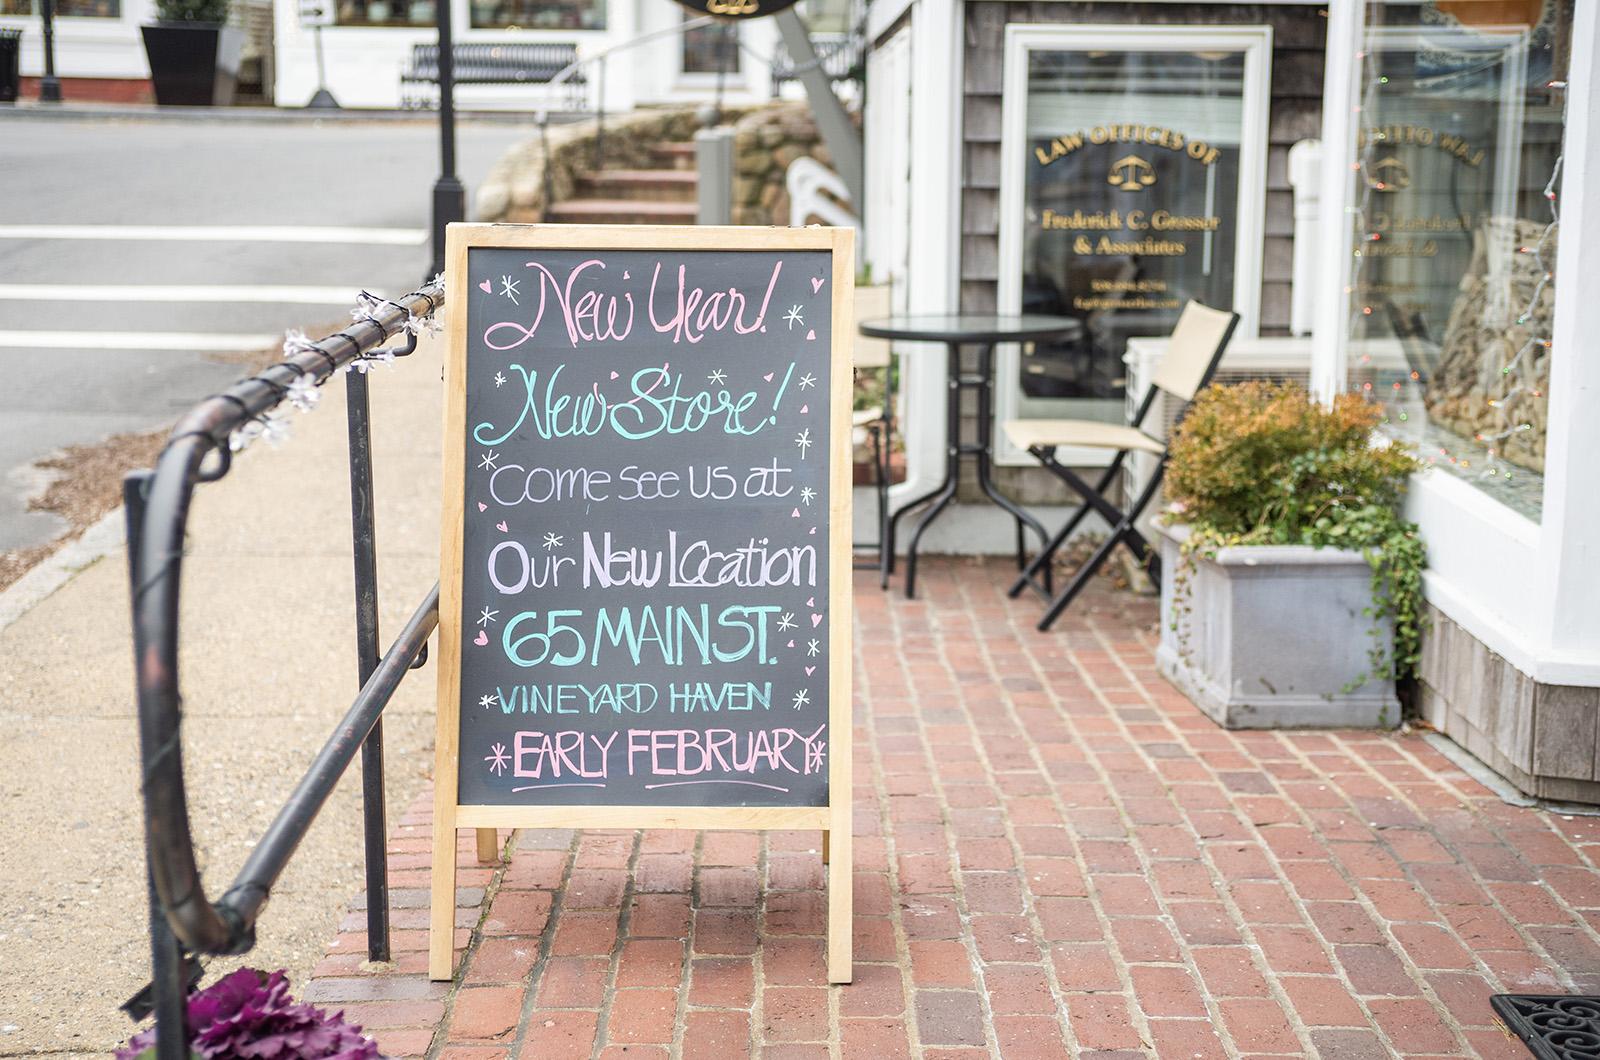 New Year!
New Store!
Come see us at
Our New Location
65 MAIN ST.
VINEYARD HAVEN
EARLY FEBRUARY
LAW OFFICES OF
Frederick C. Grosser
& Associates
LAW OFFICES OF